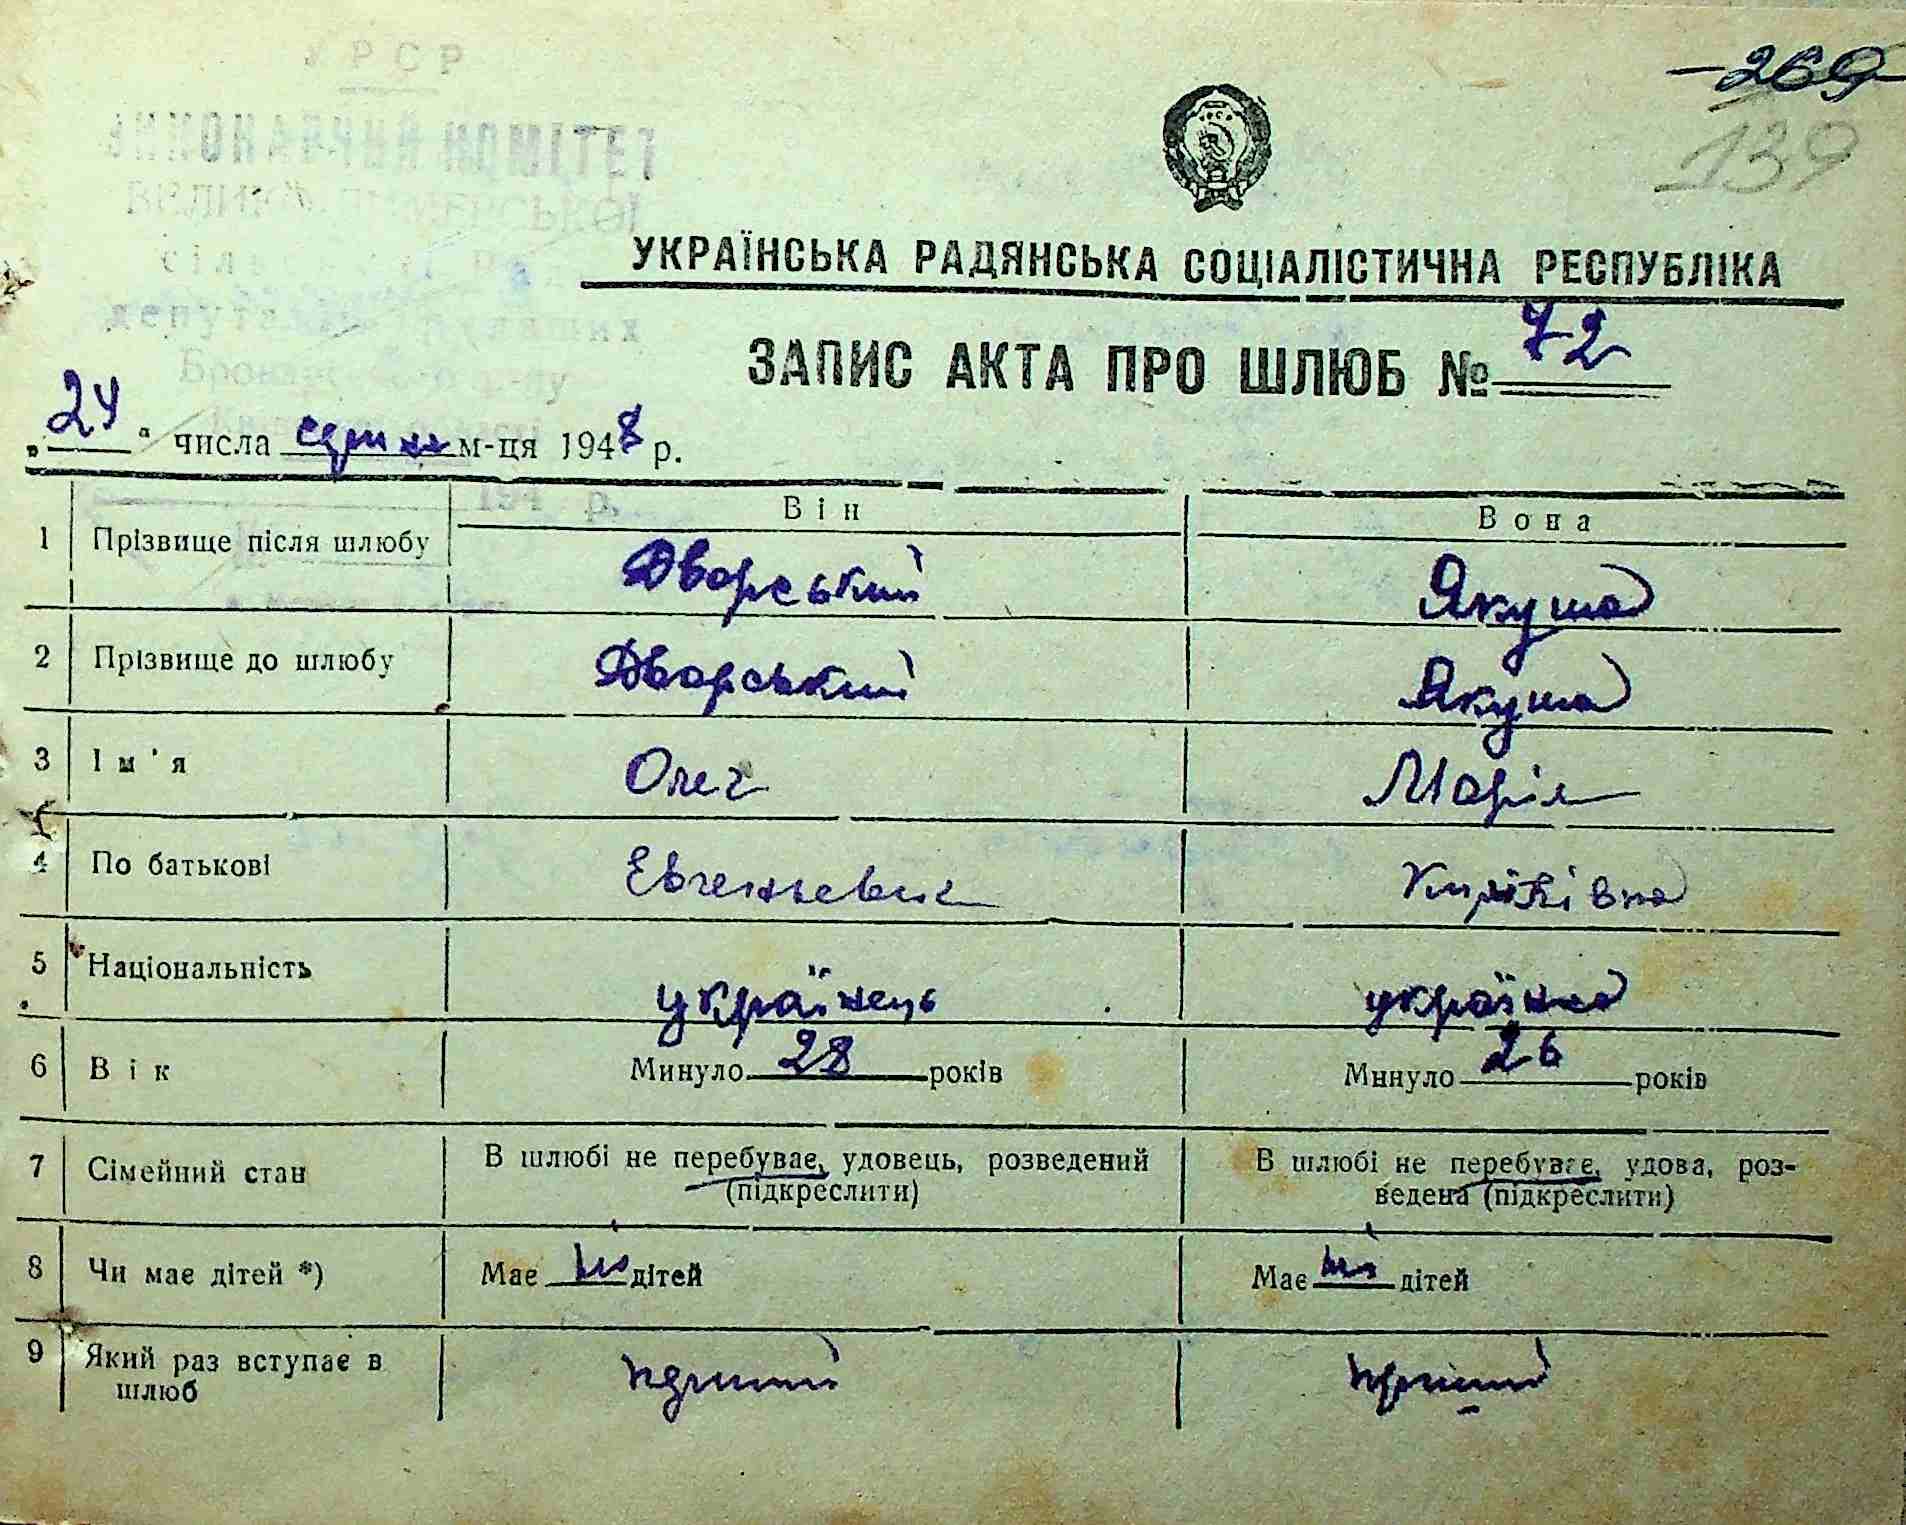 УРСР
ВИКОНАВЧИЙ КОМІТЕТ
ВЕЛИКО-ДИМЕРСЬКОЇ
сільської Ради
депутатів трудящих
Броварського р-ну
-269-
139
УКРАЇНСЬКА РАДЯНСЬКА СОЦІАЛІСТИЧНА РЕСПУБЛІКА
ЗАПИС АКТА ПРО ШЛЮБ № 72
„24“ числа серпня м-ця 1948 р.
194 р.
Він Вона
1 Прізвище після шлюбу Дворський Якуша
2 Прізвище до шлюбу Дворський Якуша
3 Ім'я Олег Марія
4 По батькові Евгеньевич
5 Національність українець українка
6 Вік Минуло 28 років Минуло 26 років
7 Сімейний стан В шлюбі не перебуває, удовець, розведений (підкреслити) В шлюбі не перебуває, удова, роз-
ведена (підкреслити)
8 Чи має дітей *) Має ні дітей Має ні дітей
9 Який раз вступає в
шлюб перший перший